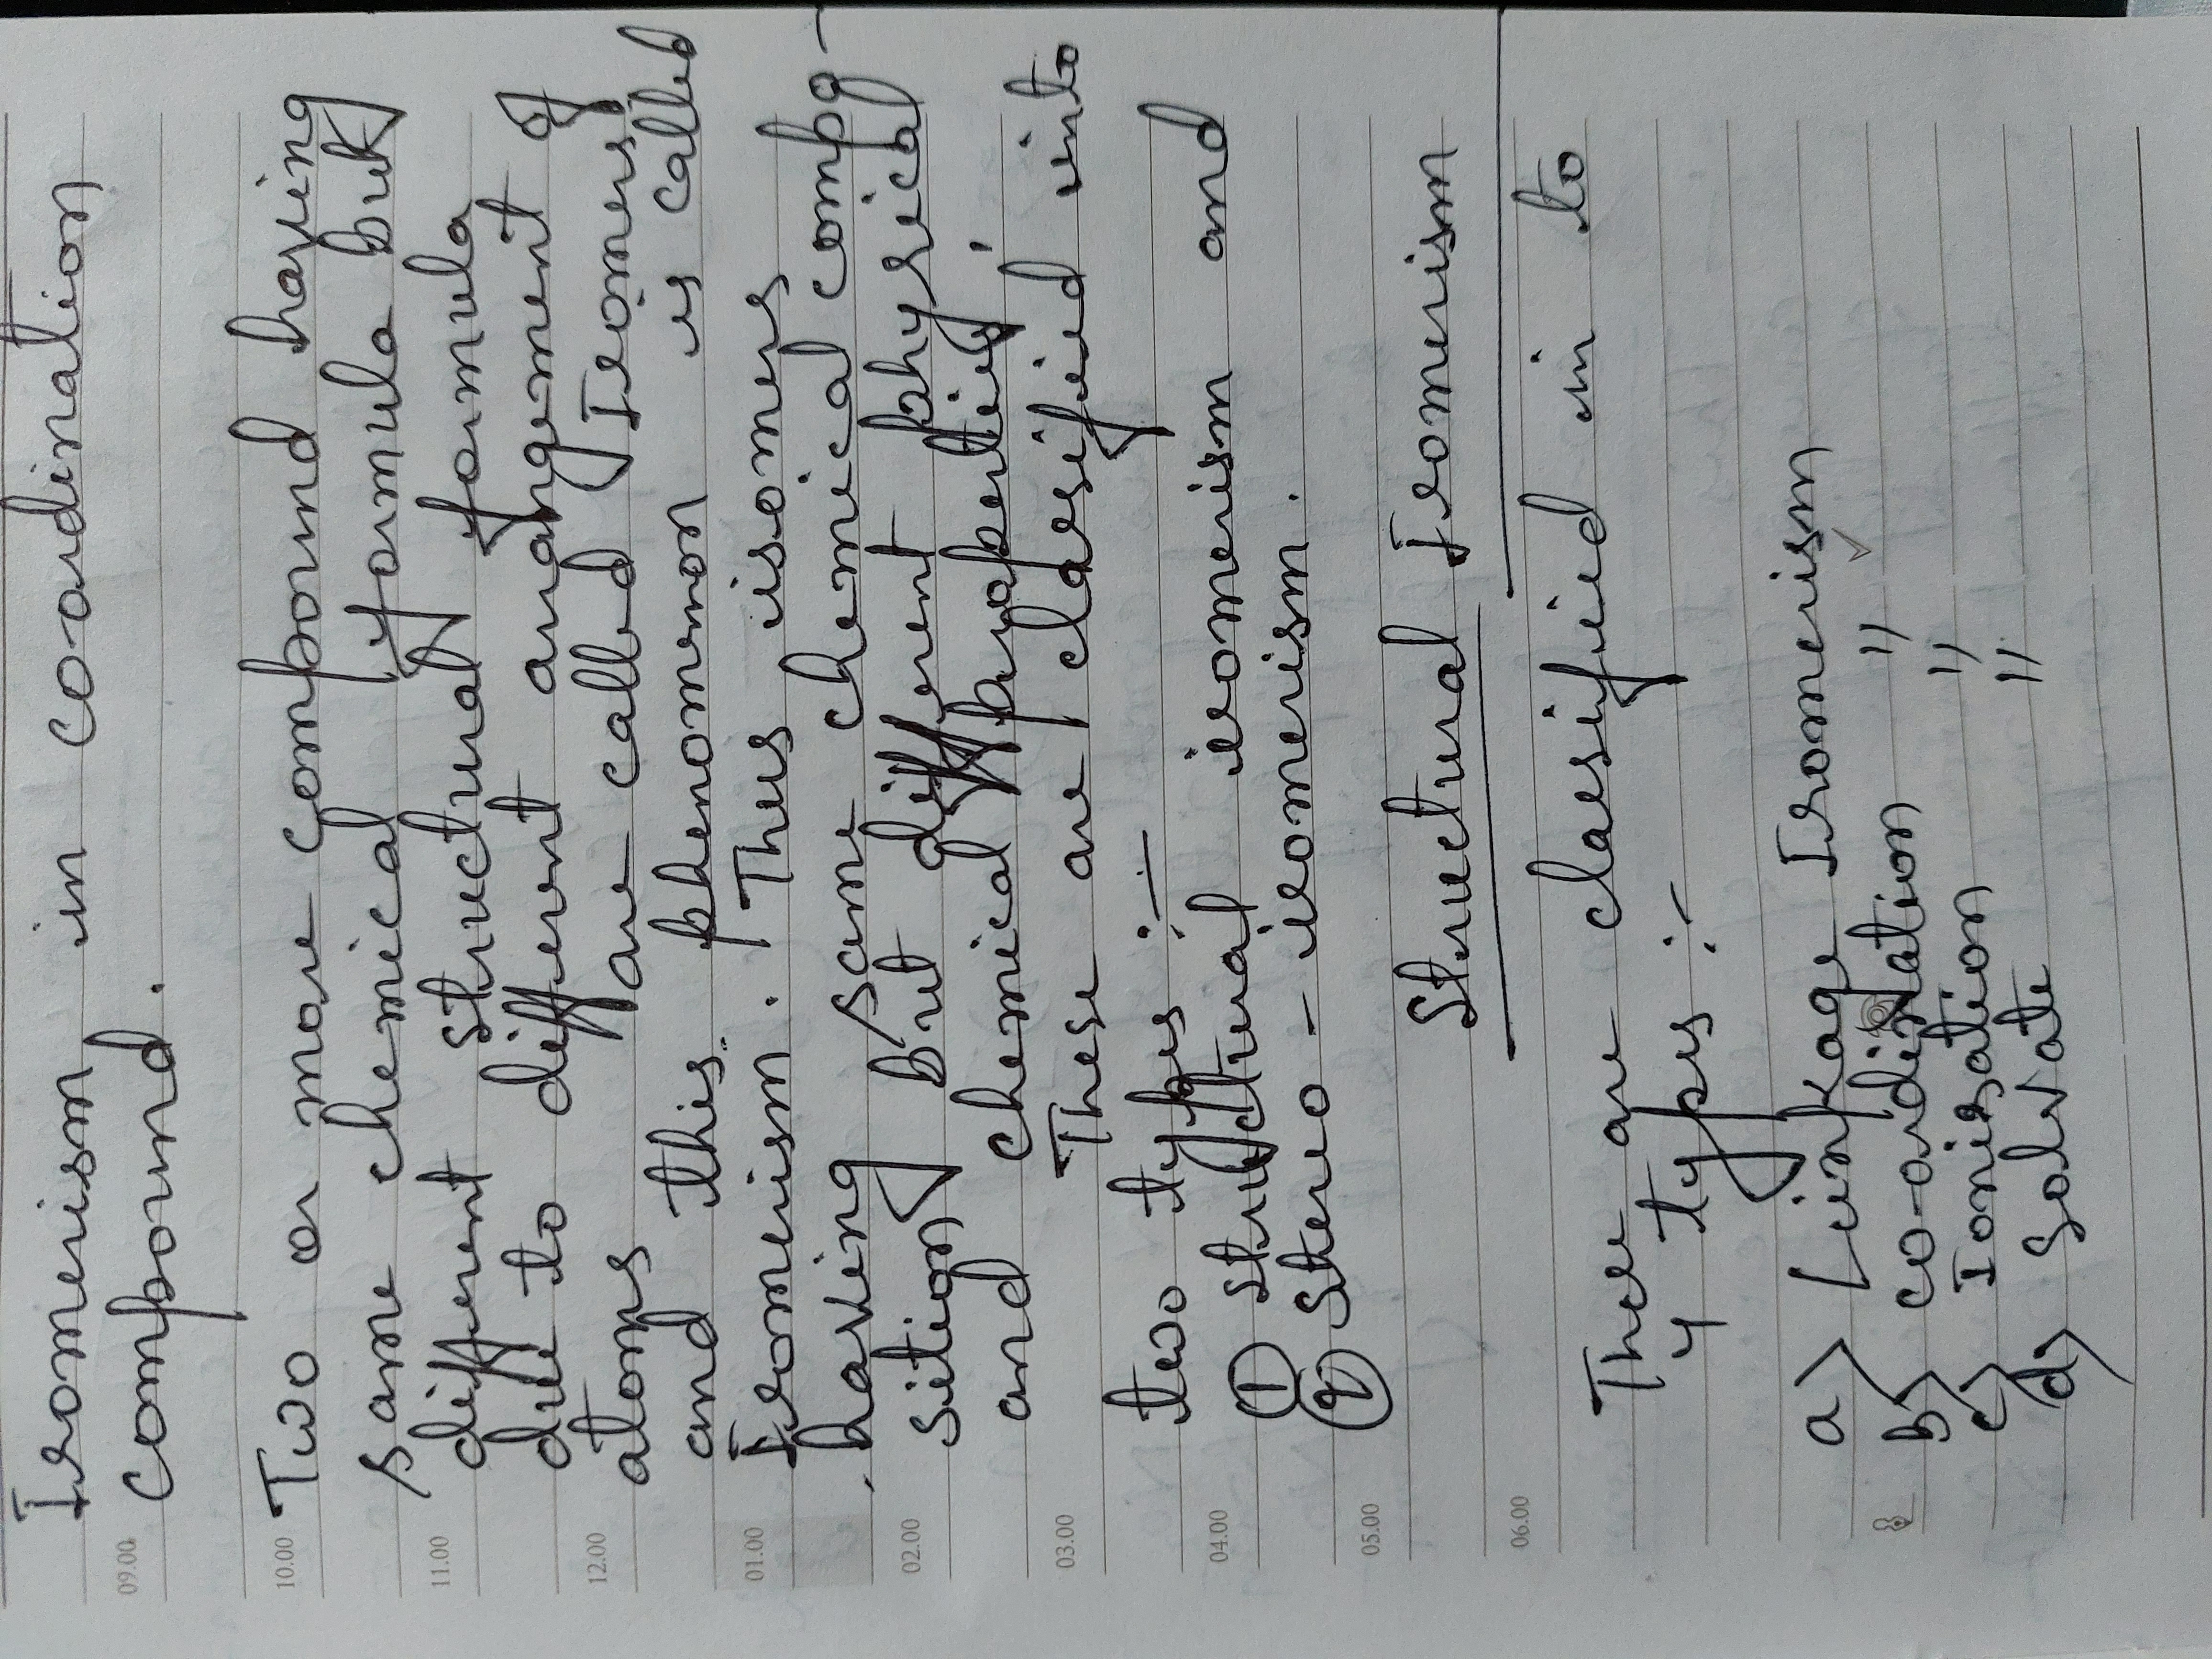 Isomerism in coordination
09.00
compound.
10.00
Two or more compound having
same chemical formula but
11.00
different structural formula
due to different arrangement of
12.00
atoms are called (Isomers)
and this phenomenon is called
01.00
Isomerism. Thus isomers
having same chemical compo-
02.00
sition But different physical
and chemical properties'
03.00
These are classified into
two types :-
04.00
① structural isomerism and
② Stereo - isomerism.
05.00
Structural Isomerism
06.00
There are classified in to
4 types :-
a> Linkage Isomerism
b> co-ordination "
c> Ionisation "
d> Solvate "